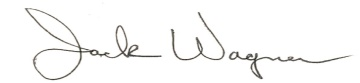 Jack Wagner